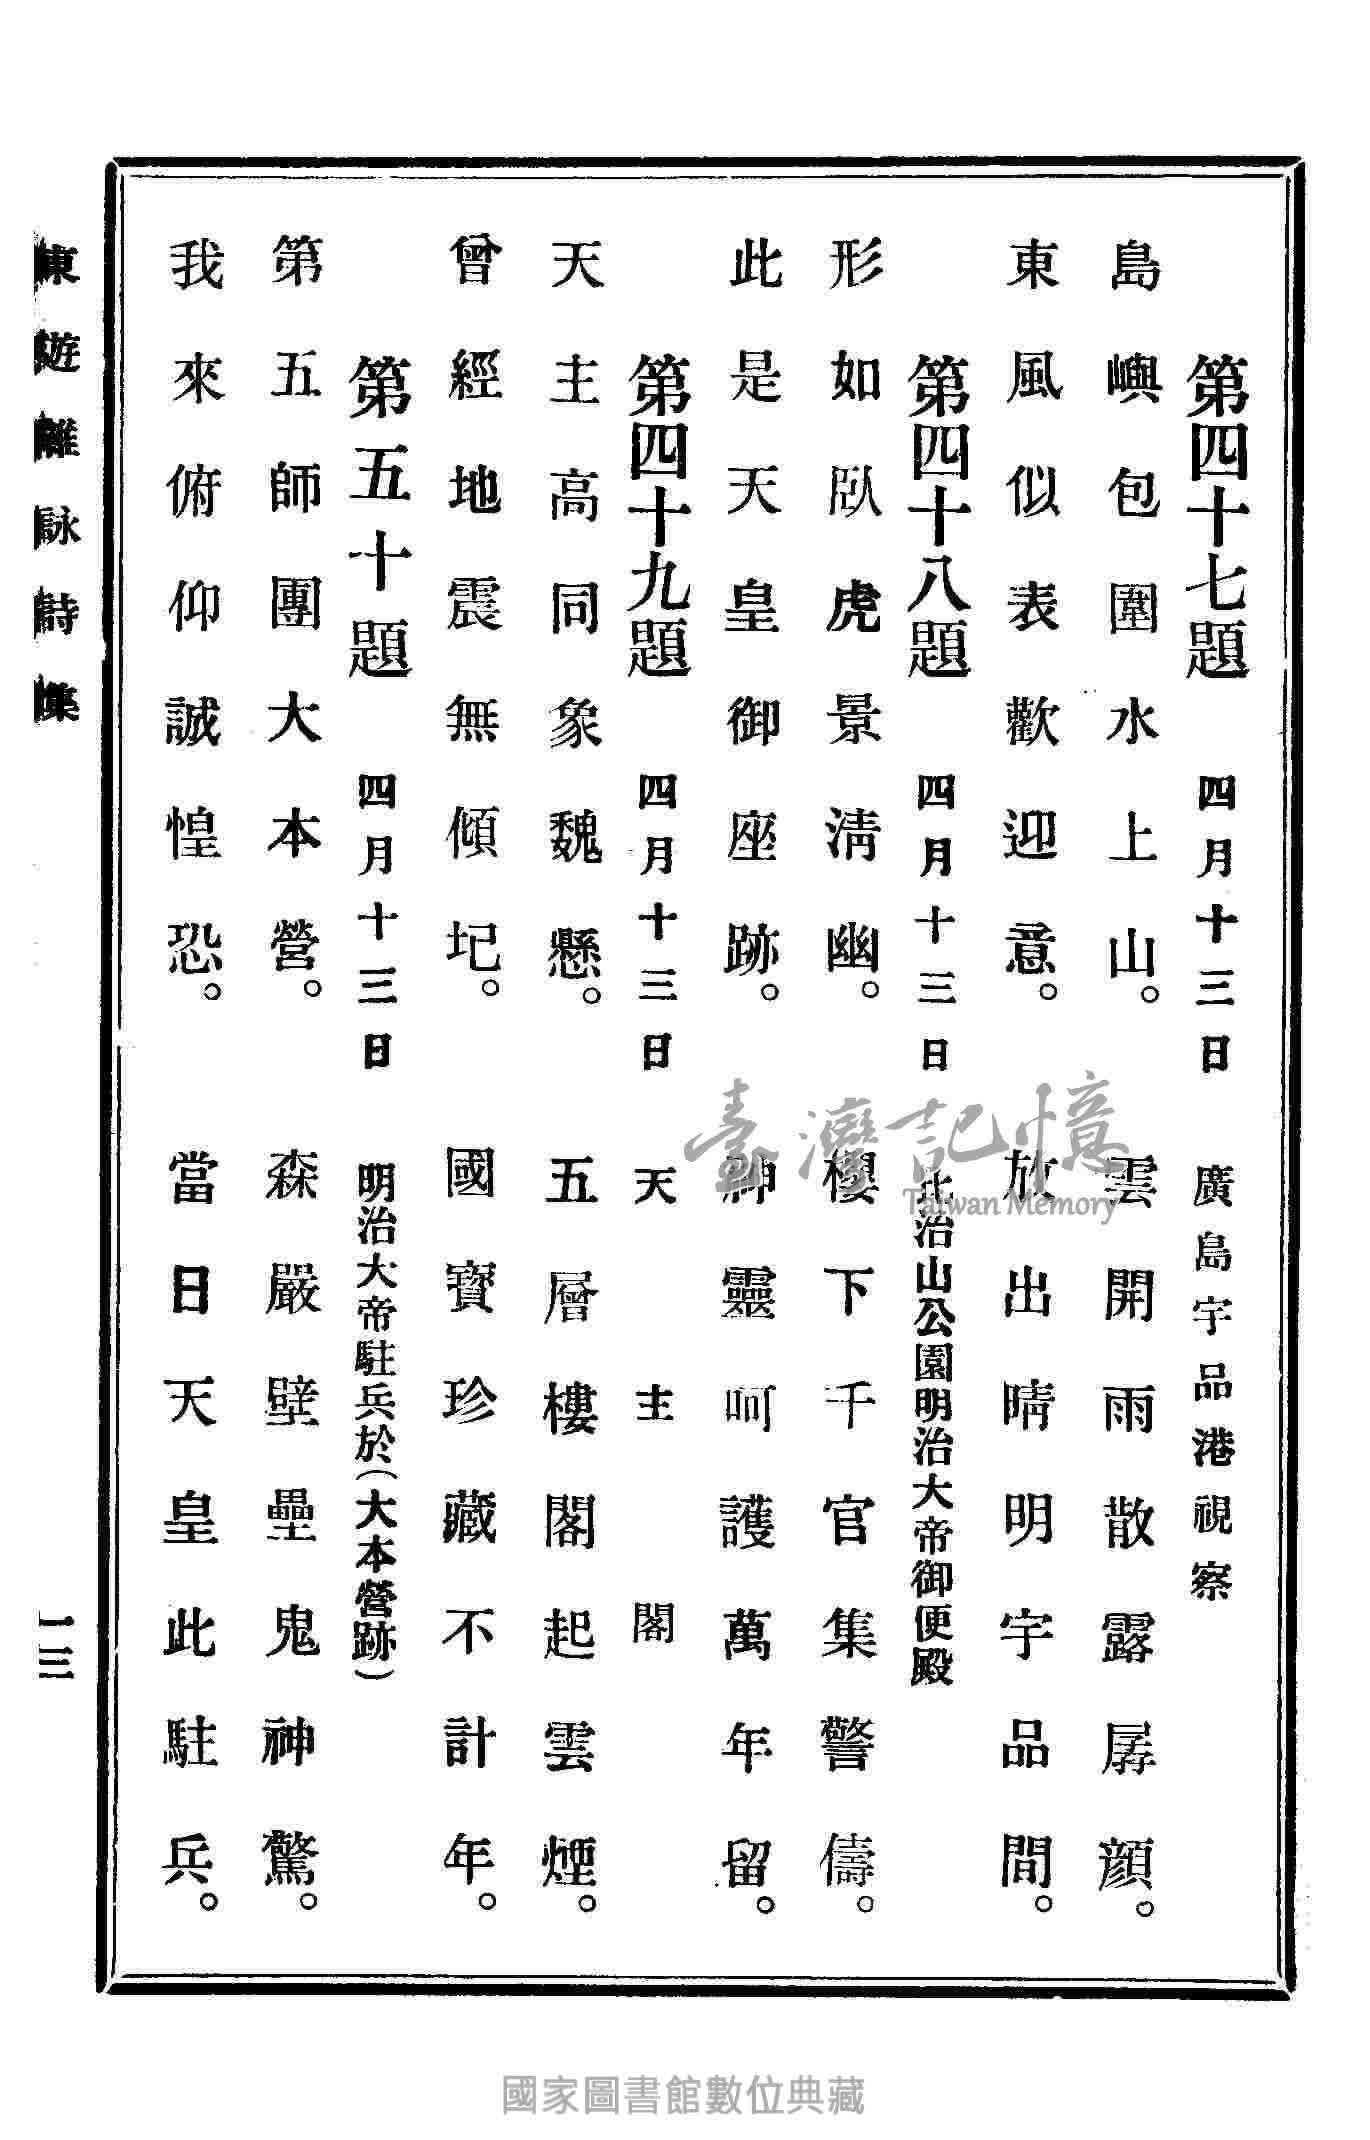 第四十七題 四月十三日 廣島宇品港視察
島嶼包圍水上山。 雲開雨散露孱顔。
東風似表歡迎意。 放出晴明宇品間。
第四十八題 四月十三日 比治山公園明治大帝御便殿
形如臥虎景淸幽。 櫻下千官集警儔。
此是天皇御座跡。 神靈呵護萬年留。
第四十九題 四月十三日 天主閣
天主高同象魏懸。 五層樓閣起雲煙。
曾經地震無傾圮。 國寶珍藏不計年。
第五十題 四月十三日 明治大帝駐兵於(大本營跡)
第五師團大本營。 森嚴壁壘鬼神驚。
我來俯仰誠惶恐。 當日天皇此駐兵。
東遊雜詠詩集
一三
臺灣記憶
Taiwan Memory
國家圖書館數位典藏